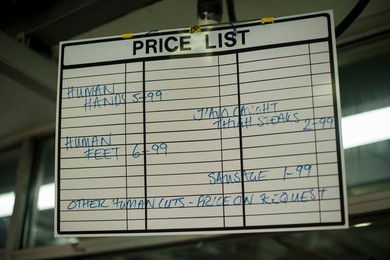 PRICE LIST
HUMAN
HANDS 5-99
THIGH STEAKS 7-99
HUMAN
FEET 6-99
SAUSAGE 1-99
OTHER HUMAN CUTS - PRICE ON REQUEST